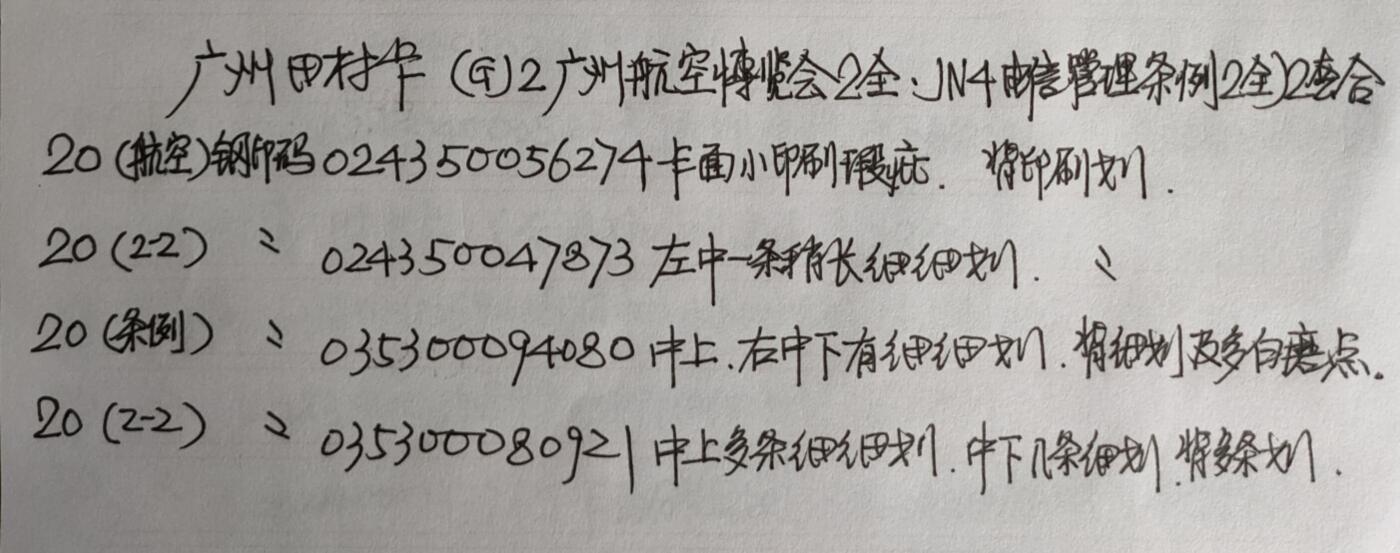 广州田村卡(G)2广州航空博览会2全·JN4电信管理条例2全)2套合
20(航空)钢印码024350056274卡面小印刷瑕疵. 背印刷划.
20(2-2) 〃 024350047873左中一条稍长细细划. 〃
20(条例) 〃 035300094080中上.右中下有细细划.背细划及多白磨点.
20(2-2) 〃 035300080921中上多条细细划.中下几条细划.背多条划.